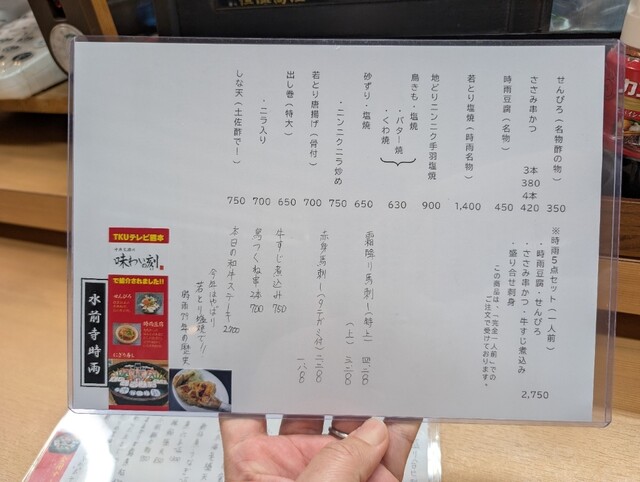 せんぴろ（名物酢の物） 350
ささみ串かつ
3本 380
4本 420
時雨豆腐（名物） 450
若とり塩焼（時雨名物） 1,400
地どりニンニク手羽塩焼 900
鳥きも・塩焼
・バター焼
・くわ焼
630
砂ずり・塩焼 650
・ニンニクニラ炒め 750
若とり唐揚げ（骨付） 700
出し巻（特大） 650
・ニラ入り 700
しな天（土佐酢でー） 750
※時雨5点セット（一人前）
・時雨豆腐・せんぴろ
・ささみ串かつ・牛すじ煮込み
・盛り合せ刺身
2,750
この商品は、「完全一人前」での
ご注文で受けております。
霜降り馬刺し（特上）
（上）
赤身馬刺し
牛すじ煮込み 750
鳥つくね串 2本 700
本日の和牛ステーキ 2700
今年はやっぱり
若とり塩焼で!!
時雨79年の歴史
TKUテレビ熊本
味わいの刻
で紹介されました!!
せんぴろ
時雨豆腐
にぎり寿し
水前寺時雨